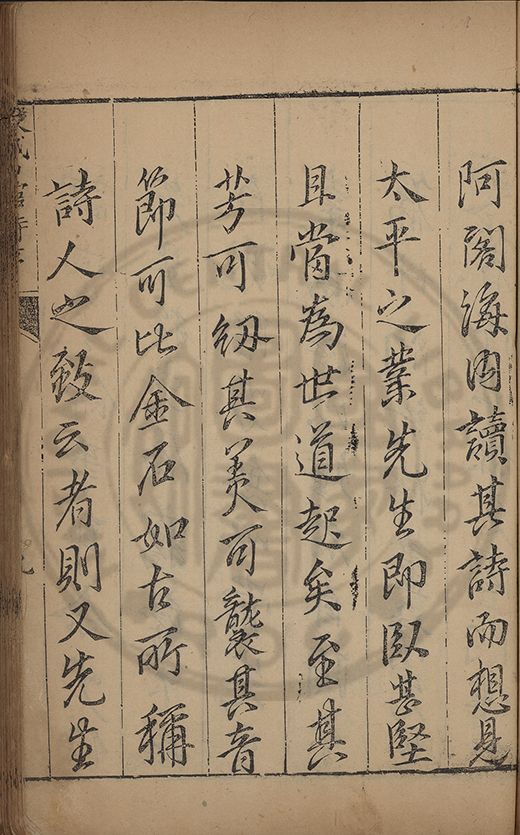 阿閣海內讀其詩而想見
太平之業先生即臥甚堅
且當為世道起矣至其
芳可紉其美可襲其音
節可比金石如古所稱
詩人之致云者則又先生